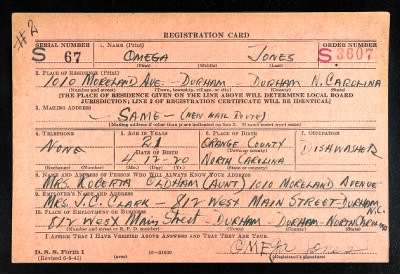 #2
REGISTRATION CARD
SERIAL NUMBER 1. NAME (Print) ORDER NUMBER
S 67 OMEGA JONES S 3607
(First) (Middle) (Last)
2. PLACE OF RESIDENCE (Print)
1010 MORELAND AVE. - DURHAM - DURHAM N. CAROLINA
(Number and street) (Town, township, village, or city) (County) (State)
[THE PLACE OF RESIDENCE GIVEN ON THE LINE ABOVE WILL DETERMINE LOCAL BOARD
JURISDICTION; LINE 2 OF REGISTRATION CERTIFICATE WILL BE IDENTICAL]
3. MAILING ADDRESS
SAME - (NEW MAIL ROUTE)
[Mailing address if other than place indicated on line 2. If same insert word same]
4. TELEPHONE 5. AGE IN YEARS 6. PLACE OF BIRTH 7. OCCUPATION
NONE 21 ORANGE COUNTY DISHWASHER
DATE OF BIRTH (Town or county)
4-17-20 NORTH CAROLINA
(Exchange) (Number) (Mo.) (Day) (Yr.) (State or country)
8. NAME AND ADDRESS OF PERSON WHO WILL ALWAYS KNOW YOUR ADDRESS
MRS. ROBERTA OLDHAM (AUNT) 1010 MORELAND AVENUE
9. EMPLOYER'S NAME AND ADDRESS
MRS. J.C. CLARK - 812 WEST MAIN STREET - DURHAM, N.C.
10. PLACE OF EMPLOYMENT OR BUSINESS
812 WEST MAIN Street - DURHAM - DURHAM - NORTH CAROLINA
(Number and street or R. F. D. number) (Town) (County) (State)
I AFFIRM THAT I HAVE VERIFIED ABOVE ANSWERS AND THAT THEY ARE TRUE.
D. S. S. Form 1
(Revised 6-9-41) (over) 16-21630